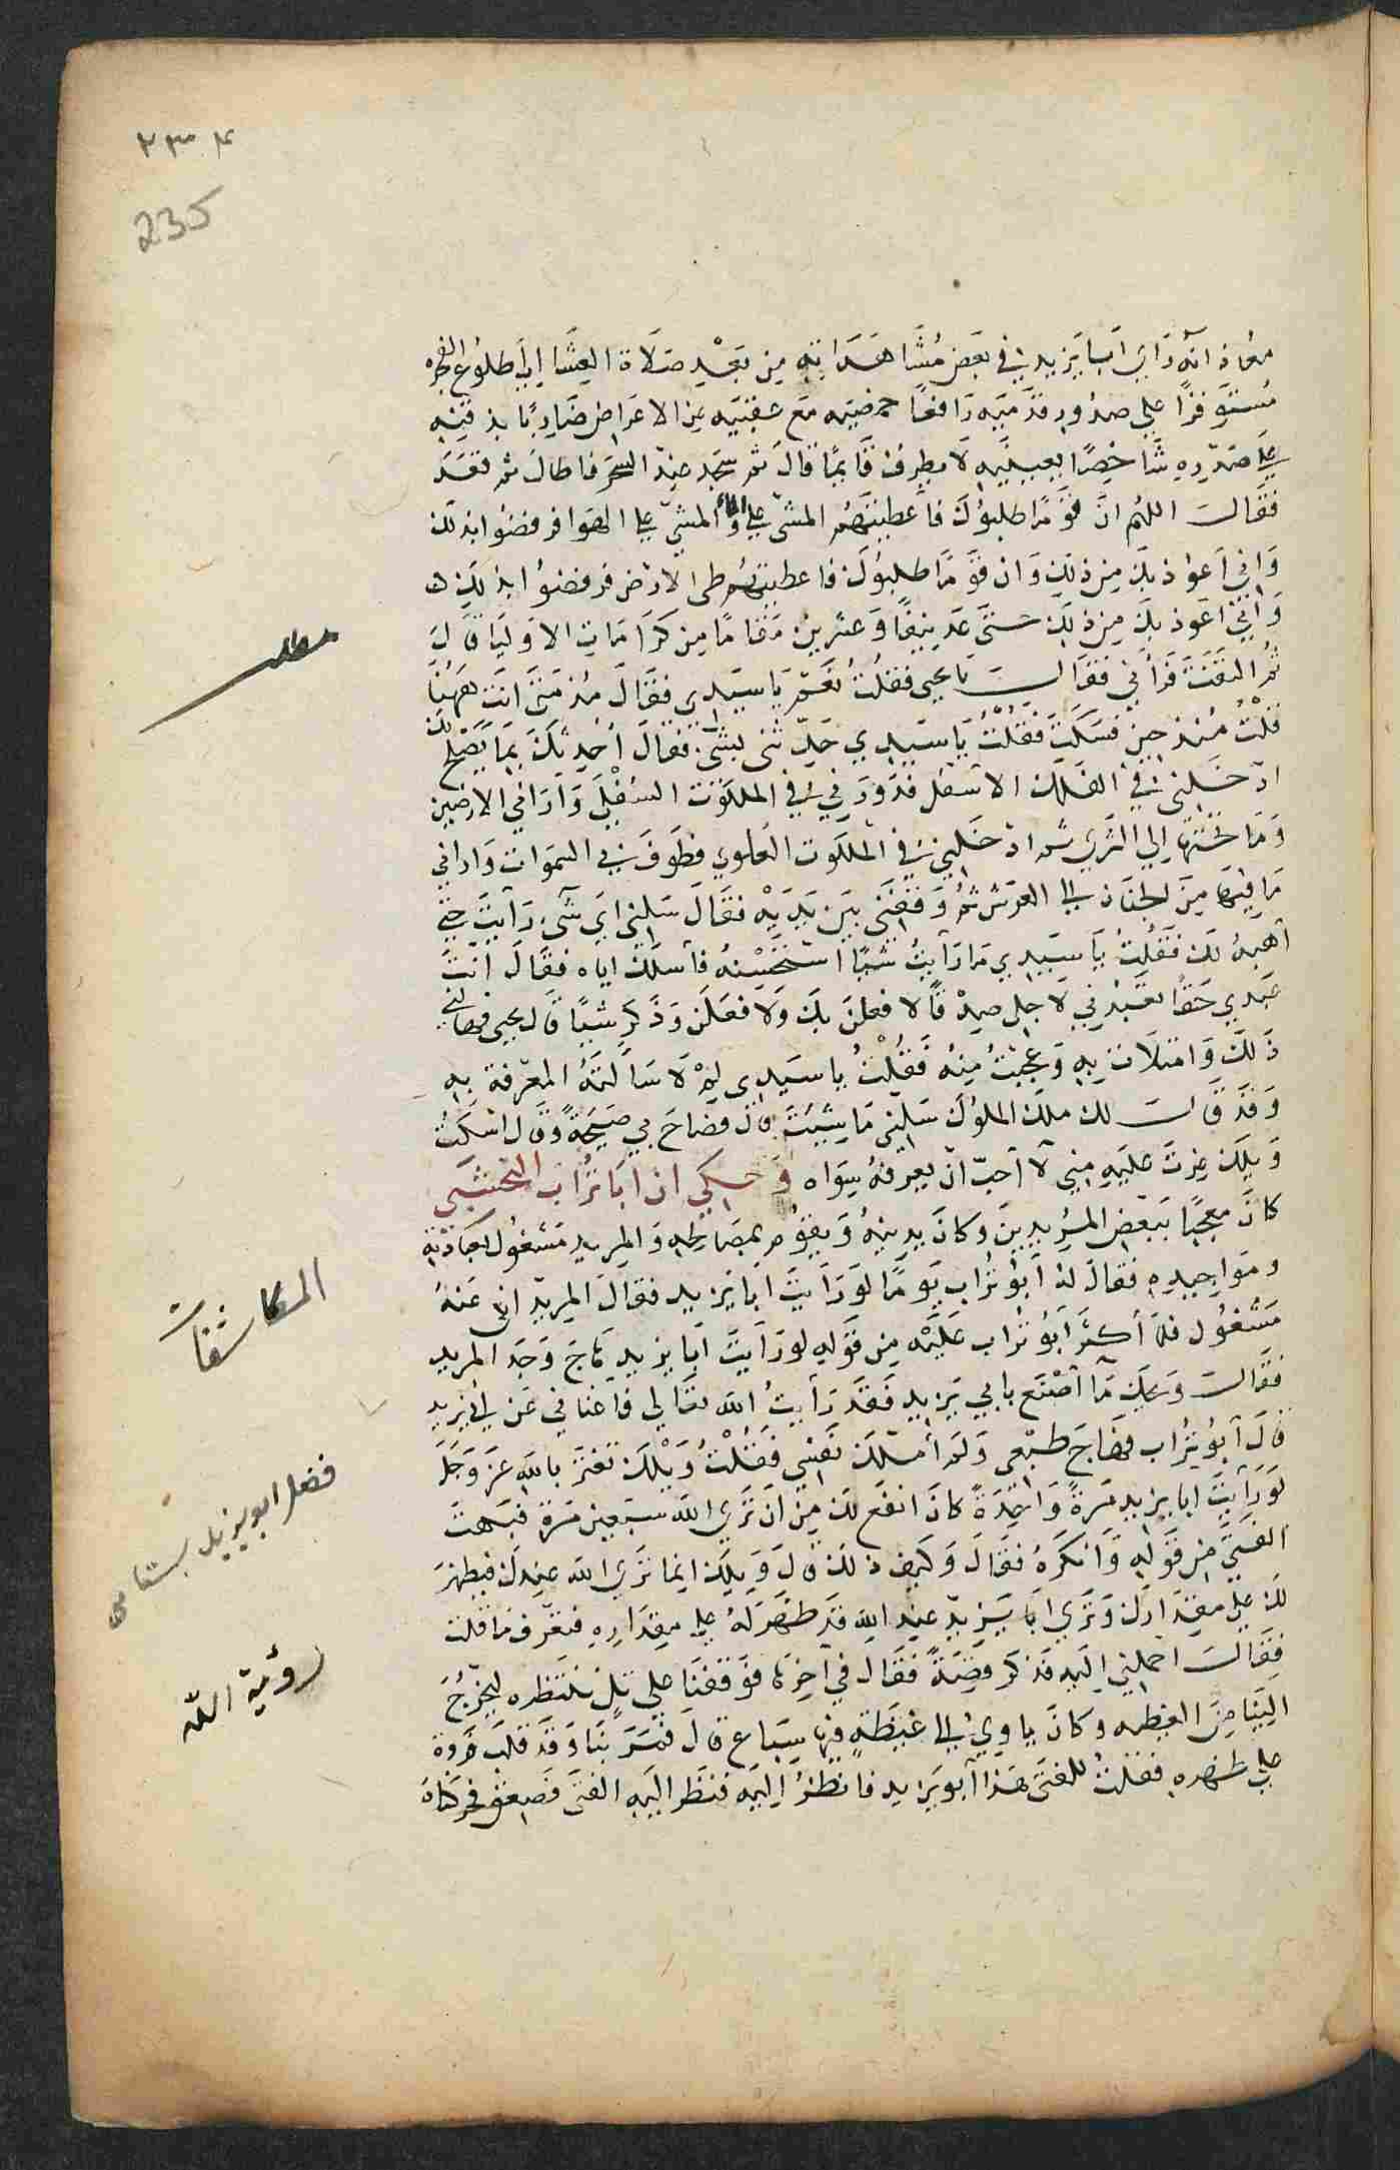 ٢٣٤
235
معاذ انه رَاي اَبا يَزيد في بعَض مُشَاهَدَاته مِن بَعْدِ صَلَاة العِشَا اِلي طلوُع الفجر
مُستَوفزًا علي صدُور قدَميَه رَافعًا اخمصيَه مَع عقبيَه عَن الارض ضَاربًا بذقنِه
علَي صَدره شَاخِصًا بِعينيَه لَا يطرف قَال ثم سجَد عند السحَر فاطالَ ثم قعَد
فقالَ اللهُم انَّ قوَمًا طلبوُك فاعطيتَهُم المشي علي الماء والمشي علي الهوا فرضوا بذلك
وَاني اعوُذ بك مِن ذلك وَان قوَمًا طلبوُك فاعطيتهُم طي الارض فرضوُا بذلك
وَاني اعوُذ بك مِن ذلك حتي عَد نيفًا وَعشرين مقامًا مِن كَرَامَات الاوليَا قَالَ
ثم التَفَتَ فرَاني فقَالَ يا يحيى فقلتُ نعَم يَا سيدي فقَالَ مُذ متي انت ههُنَا
قلتُ مُنذ حين فسَكَت فقُلتُ يَا سيدي حَدثني بشي فقالَ احَدثك بمَا يَصلح لك
ادخلني في الفلك الاسفل فدَوَرني في الملكوت السُفلي وَارَاني الارضين
وَمَا تحتهَا الي الثري ثم ادخلني في الملكوت العلوي فطَوفَ بي السموَات وَاراني
مَا فيهَا مِن الجنان الي العرش ثم وَقفني بين يدَيه فقالَ سَلني اي شي رَايتَ حتي
اهبه لك فقلتُ يَا سيدي مَا رَايتُ شيا استحسَنتُه فاسلك اياه فقالَ انتَ
عَبدي حَقا تعبُدني لاجلي صدقًا لا فعلن بك وَلا فعَلن وَذكر شيا قَال يحيي فهالني
ذلك وَامتلات بهِ وَعَجبتُ مِنهُ فقُلتُ يا سيدي لِم لَا سَالتهُ المعرفة بهِ
وَقد قالَ لك ملك الملوُك سَلني مَا شيتَ قال فصَاحَ بي صَيحَةً وَقال اسكت
وَيلك غِرتُ علَيه مني لا احبّ ان يعرفهُ سِوَاه وَحكي ان ابَا تُرَاب النخشبي
كانَ معجبًا ببَعض المريدينَ وكانَ يدنيهُ وَيقوُم بمصَالحه وَالمريد مَشغول بعبَادته
ومَوَاجيدِه فقالَ لهُ ابوُ تُرَاب يومًا لو رَايتَ ابا يَزيد فقالَ المريد اني عَنهُ
مَشغُول فلمّا اكثَر ابوُ تراب علَيه مِن قوَله لو رَايتَ ابا يزيد هَاجَ وَجد المريد
فقالَ وَيحك مَا اصنَع بابي يَزيد فقَد رَايتُ الله تعَالي فاغناني عَن ابي يزيد
قالَ ابوُ تُرَاب فهَاجَ طبعي وَلم املك نفسي فقلتُ وَيلك تغتر بالله عز وَجلَ
لو رَايتَ ابا يزيد مَرةً وَاحدةً كانَ انفَع لك مِن ان تَري الله سبعين مَرة فبهتَ
الفتي من قوَله وَانكرهُ فقالَ وَكيف ذلك قالَ وَيلك انما تري الله عندك فيظهَر
لك علي مقدَارك وَتري ابا يزيد عند الله قد ظهَر لهُ علي مقدَاره فتعرف مَا قلت
فقالَ احملني اليه فذكر قصَة فقال في اخرهَا فوَقفنَا علي تلٍ ننتظره ليَخرُجَ
الينا منَ الغيضه وكانَ يَاوي الي غيضَة فيهَا سبَاع قالَ فمرَ بنَا وَقد قلبَ فروَة
علي ظهرهِ فقلتُ للفتى هَذا ابو يزيد فانظرُ اليه فنظَر اليه الفتى فصَعق فحركناهُ
مطلب
المكاشفات
فضل ابو يزيد بسطامى
رؤية الله